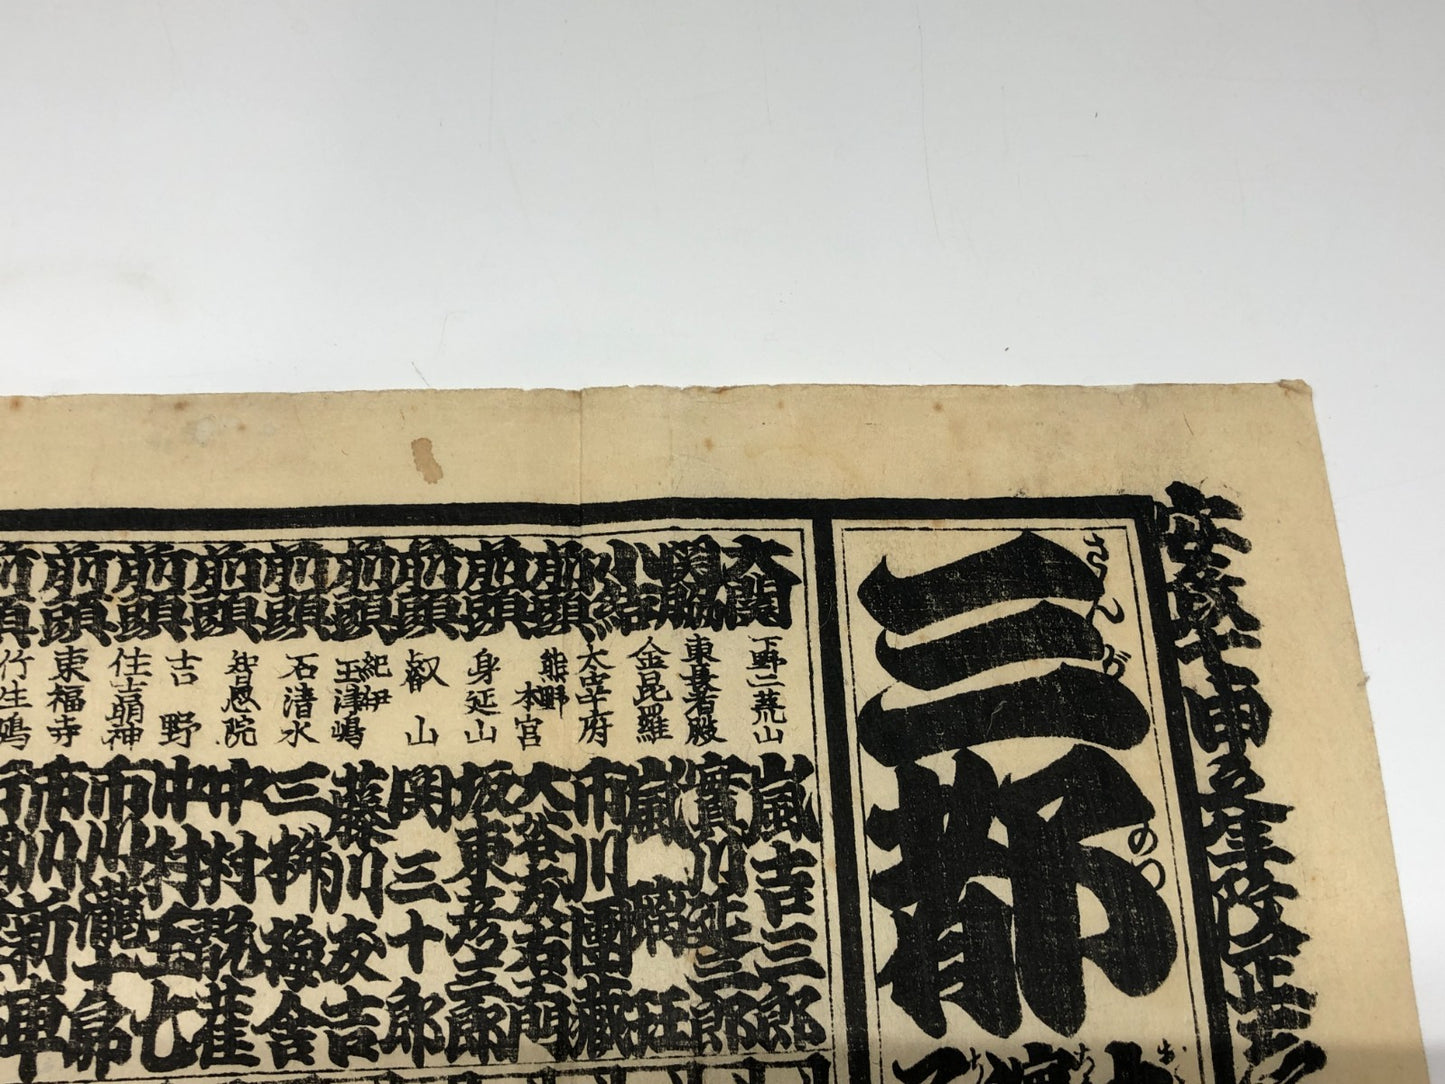 申五年改正
三都
さんがのつ
大関 下野二荒山 嵐吉三郎
関脇 東長者殿 實川延三郎
小結 金昆羅 嵐璃珏
前頭 太宰府 市川團蔵
前頭 熊野本宮 大谷友右エ門
前頭 身延山 坂東彦三郎
前頭 叡山 関三十郎
前頭 紀伊玉津嶋 藤川友吉
前頭 石清水 三桝梅舎
前頭 智恩院 中村翫雀
前頭 吉野 中村玉七
前頭 住吉明神 市川瀧十郎
前頭 東福寺 市川新車
前頭 竹生嶋